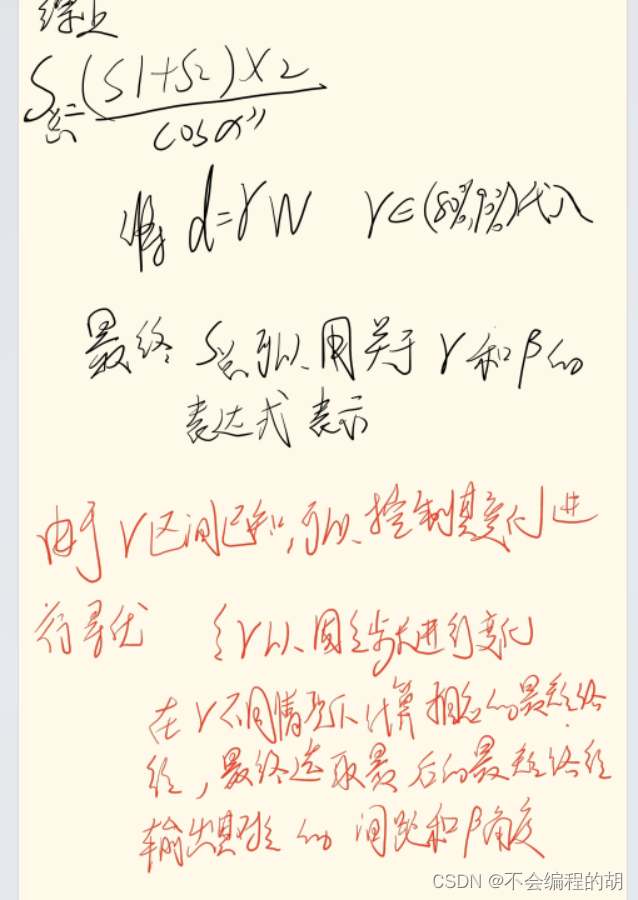 综上
S总=(S1+S2)×2
cosα"
将 d=γW γ∈(80%,90%)代入
最终 S总可以用关于 γ 和 β 的
表达式表示
由于 γ 区间已知,可以控制其变化进
行寻优 γ以固定步长进行变化
在 γ 不同情况下计算相应的最短路
径,最终选取最后的最短路径
输出其对应的 间距和β角度
CSDN @不会编程的胡